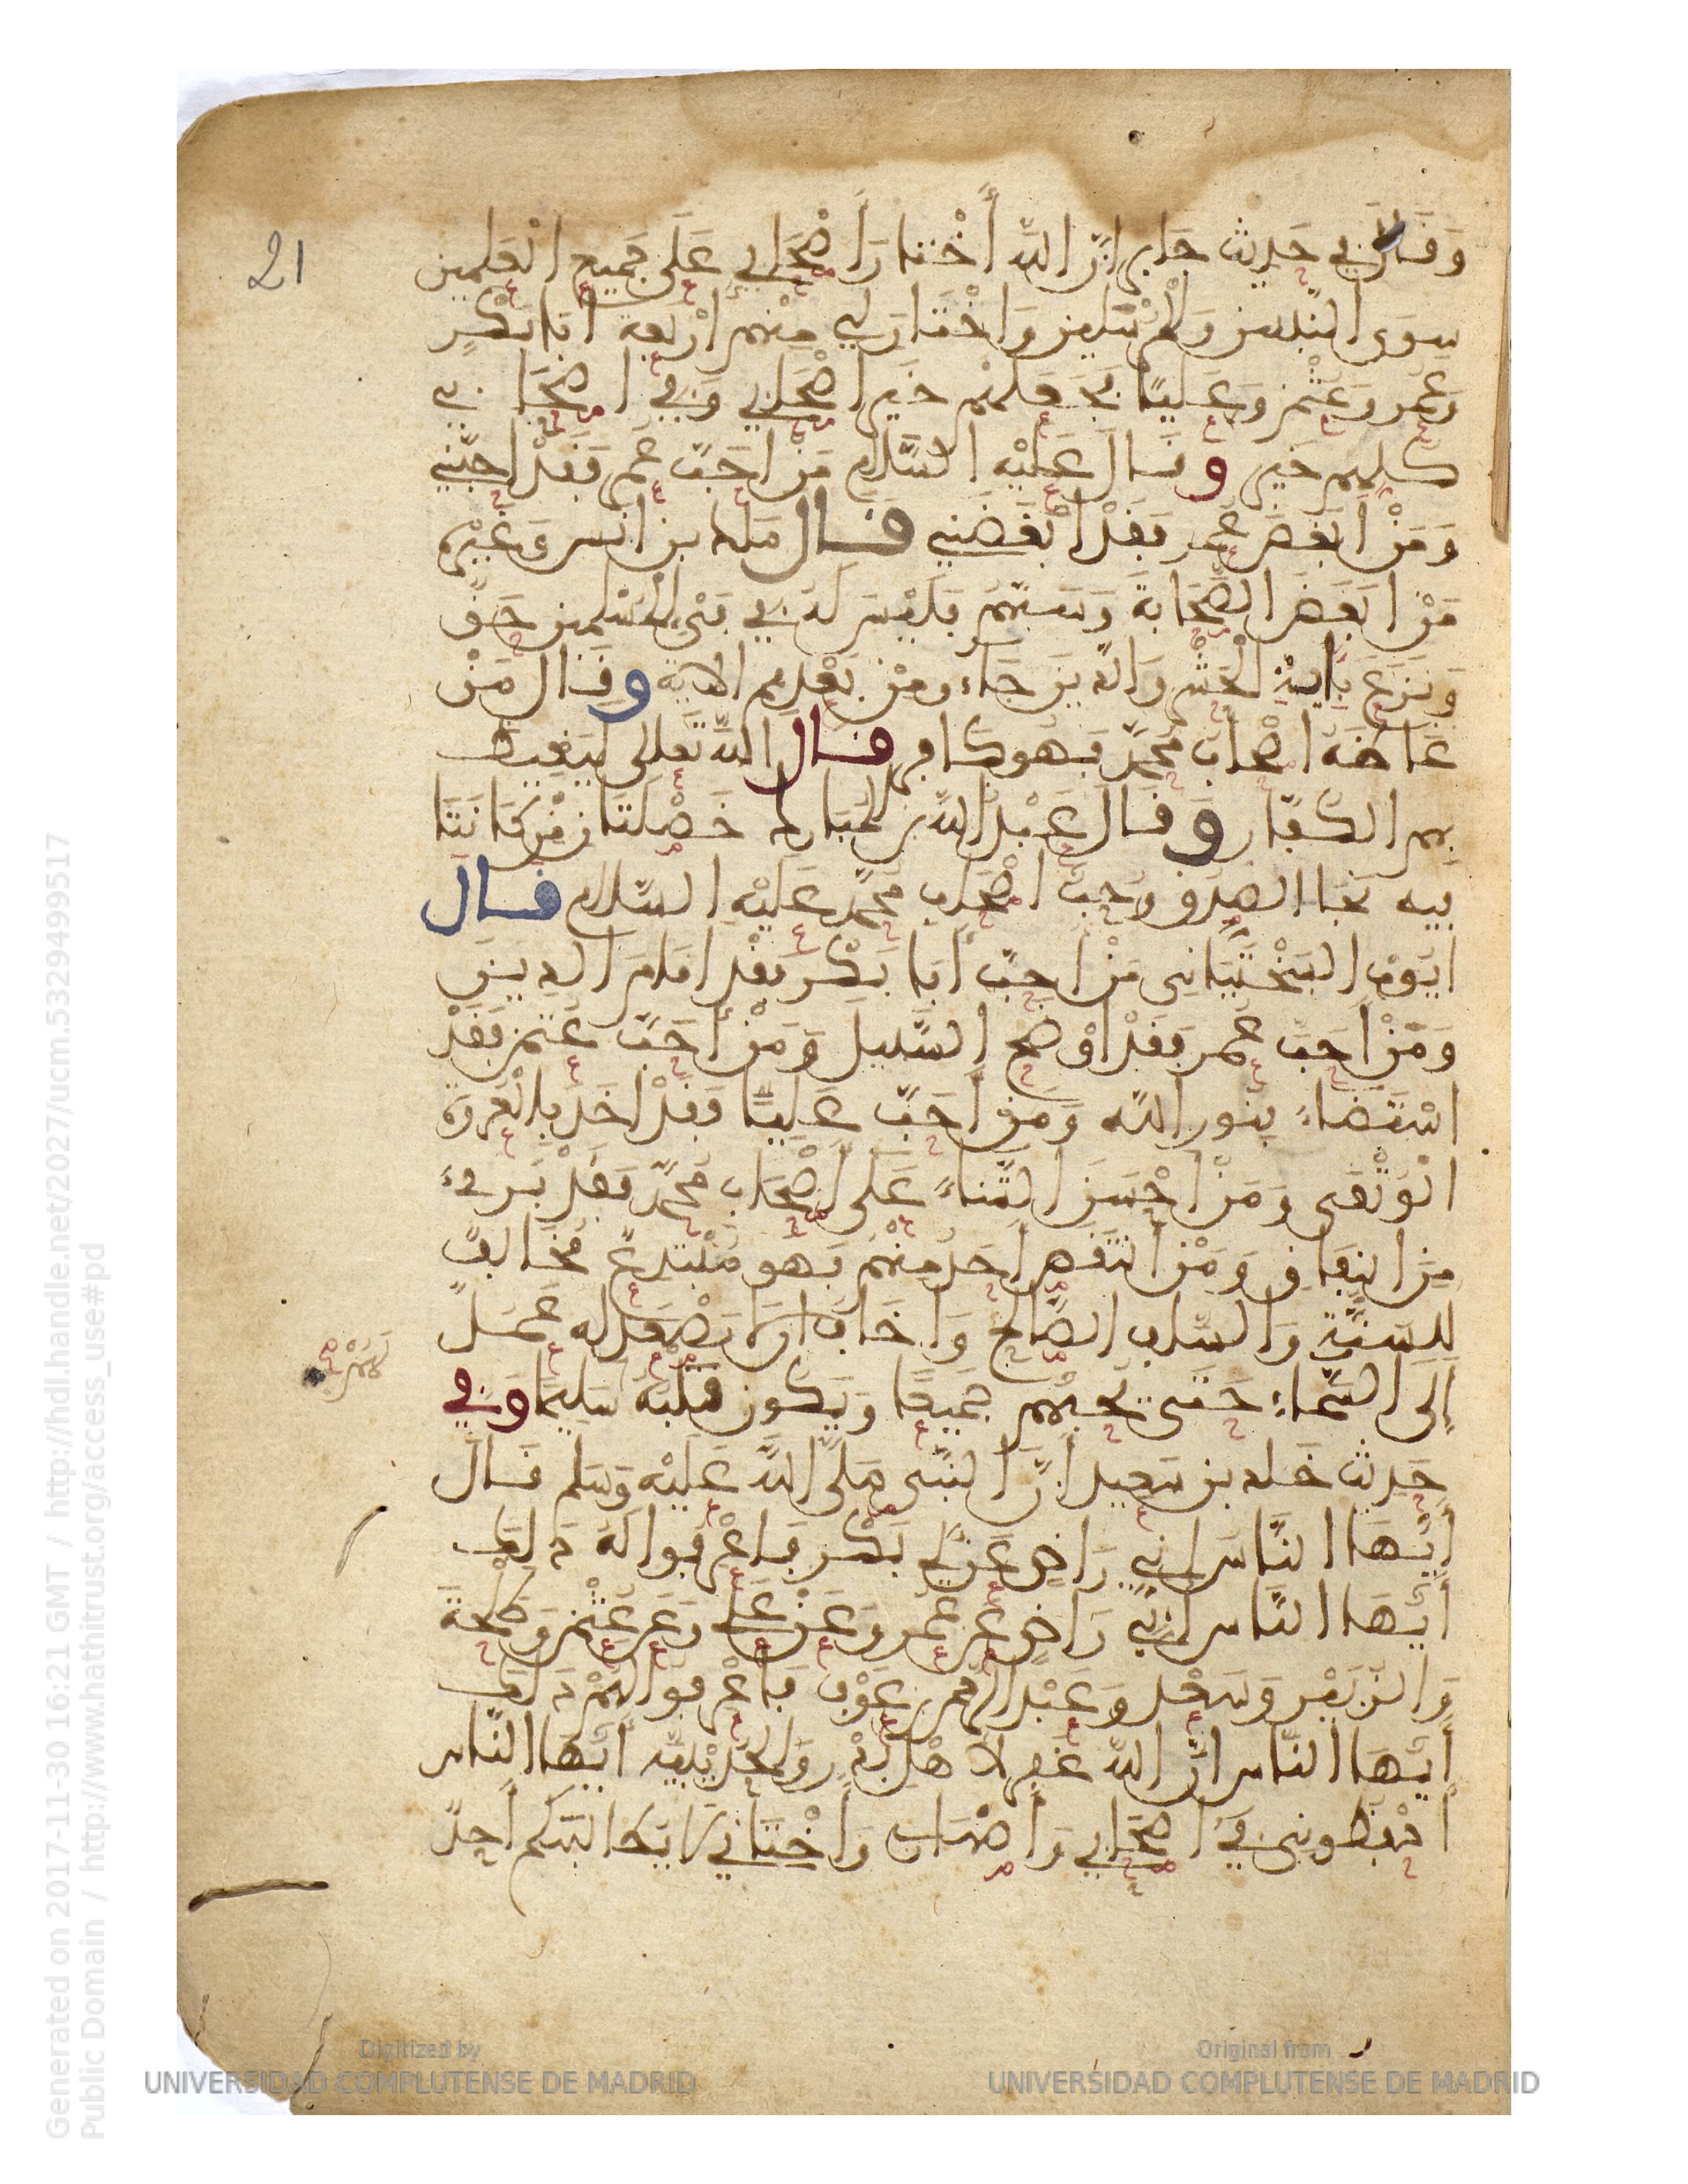 21
وَقَالَ في حَدِيثِ جَابِرٍ اِنَّ اللَّهَ أَخْتَارَ أَصْحَابِي عَلَى جَمِيعِ الْعَلَمِينَ
سِوَى النَّبِيِّينَ وَالْمُرْسَلِينَ وَاخْتَارَ لِي مِنْهُمْ أَرْبَعَةً أَبَا بَكْرٍ
وَعُمَرَ وَعُثْمَنَ وَعَلِيًّا فَجَعَلَهُمْ خَيْرَ أَصْحَابِي وَفِي أَصْحَابِي
كُلِّهِمْ خَيْرٌ وَقَالَ عَلَيْهِ السَّلَامُ مَنْ أَحَبَّ عُمَرَ فَقَدْ أَحَبَّنِي
وَمَنْ أَبْغَضَ عُمَرَ فَقَدْ أَبْغَضَنِي قَالَ مَلِكُ بْنُ أَنَسٍ وَغَيْرُهُ
مَنْ أَبْغَضَ الصَّحَابَةَ وَسَبَّهُمْ فَلَيْسَ لَهُ فِي فَيْءِ الْمُسْلِمِينَ حَقٌّ
وَنَزَعَ بِآيَةِ الْحَشْرِ وَالذِينَ جَاءُو مِنْ بَعْدِهِمُ الآيَةَ وَقَالَ مَنْ
غَاظَهُ أَصْحَابُ مُحَمَّدٍ فَهُوَ كَافِرٌ قَالَ اللَّهُ تَعَالَى لِيَغِيظَ
بِهِمُ الْكُفَّارَ وَقَالَ عَبْدُ اللَّهِ بْنُ الْمُبَارَكِ خَصْلَتَانِ مَنْ كَانَتَا
فِيهِ نَجَا الصِّدْقُ وَحُبُّ أَصْحَابِ مُحَمَّدٍ عَلَيْهِ السَّلَامُ قَالَ
أَيُّوبُ السَّخْتِيَانِيُّ مَنْ أَحَبَّ أَبَا بَكْرٍ فَقَدْ أَقَامَ الدِّينَ
وَمَنْ أَحَبَّ عُمَرَ فَقَدْ أَوْضَحَ السَّبِيلَ وَمَنْ أَحَبَّ عُثْمَنَ فَقَدْ
اسْتَضَاءَ بِنُورِ اللَّهِ وَمَنْ أَحَبَّ عَلِيًّا فَقَدْ أَخَذَ بِالْعُرْوَةِ
الْوُثْقَى وَمَنْ أَحْسَنَ الثَّنَاءَ عَلَى أَصْحَابِ مُحَمَّدٍ فَقَدْ بَرِيءَ
مِنَ النِّفَاقِ وَمَنْ انْتَقَصَ أَحَدًا مِنْهُمْ فَهُوَ مُبْتَدِعٌ مُخَالِفٌ
لِلسُّنَّةِ وَالسَّلَفِ الصَّالِحِ وَأَخَافُ أَنْ لَا يَصْعَدَ لَهُ عَمَلٌ
إِلَى السَّمَاءِ حَتَّى يُحِبَّهُمْ جَمِيعًا وَيَكُونَ قَلْبُهُ سَلِيمًا وَفِي
حَدِيثِ خَلِدِ بْنِ سَعِيدٍ أَنَّ النَّبِيَّ صَلَّى اللَّهُ عَلَيْهِ وَسَلَّمَ قَالَ
أَيُّهَا النَّاسُ إِنِّي رَاضٍ عَنْ أَبِي بَكْرٍ فَاعْرِفُوا لَهُ ذَلِكَ
أَيُّهَا النَّاسُ إِنِّي رَاضٍ عَنْ عُمَرَ وَعَنْ عَلِيٍّ وَعَنْ عُثْمَنَ وَطَلْحَةَ
وَالزُّبَيْرِ وَسَعْدٍ وَعَبْدِ الرَّحْمَنِ بْنِ عَوْفٍ فَاعْرِفُوا لَهُمْ ذَلِكَ
أَيُّهَا النَّاسُ إِنَّ اللَّهَ غَفَرَ لِأَهْلِ بَدْرٍ وَالْحُدَيْبِيَةِ أَيُّهَا النَّاسُ
احْفَظُونِي فِي أَصْحَابِي وَأَصْهَارِي وَأَخْتَانِي لَا يُطَالِبَنَّكُمْ أَحَدٌ
Generated on 2017-11-30 16:21 GMT / http://hdl.handle.net/2027/ucm.5329499517
Public Domain / http://www.hathitrust.org/access_use#pd
Digitized by
UNIVERSIDAD COMPLUTENSE DE MADRID
Original from
UNIVERSIDAD COMPLUTENSE DE MADRID